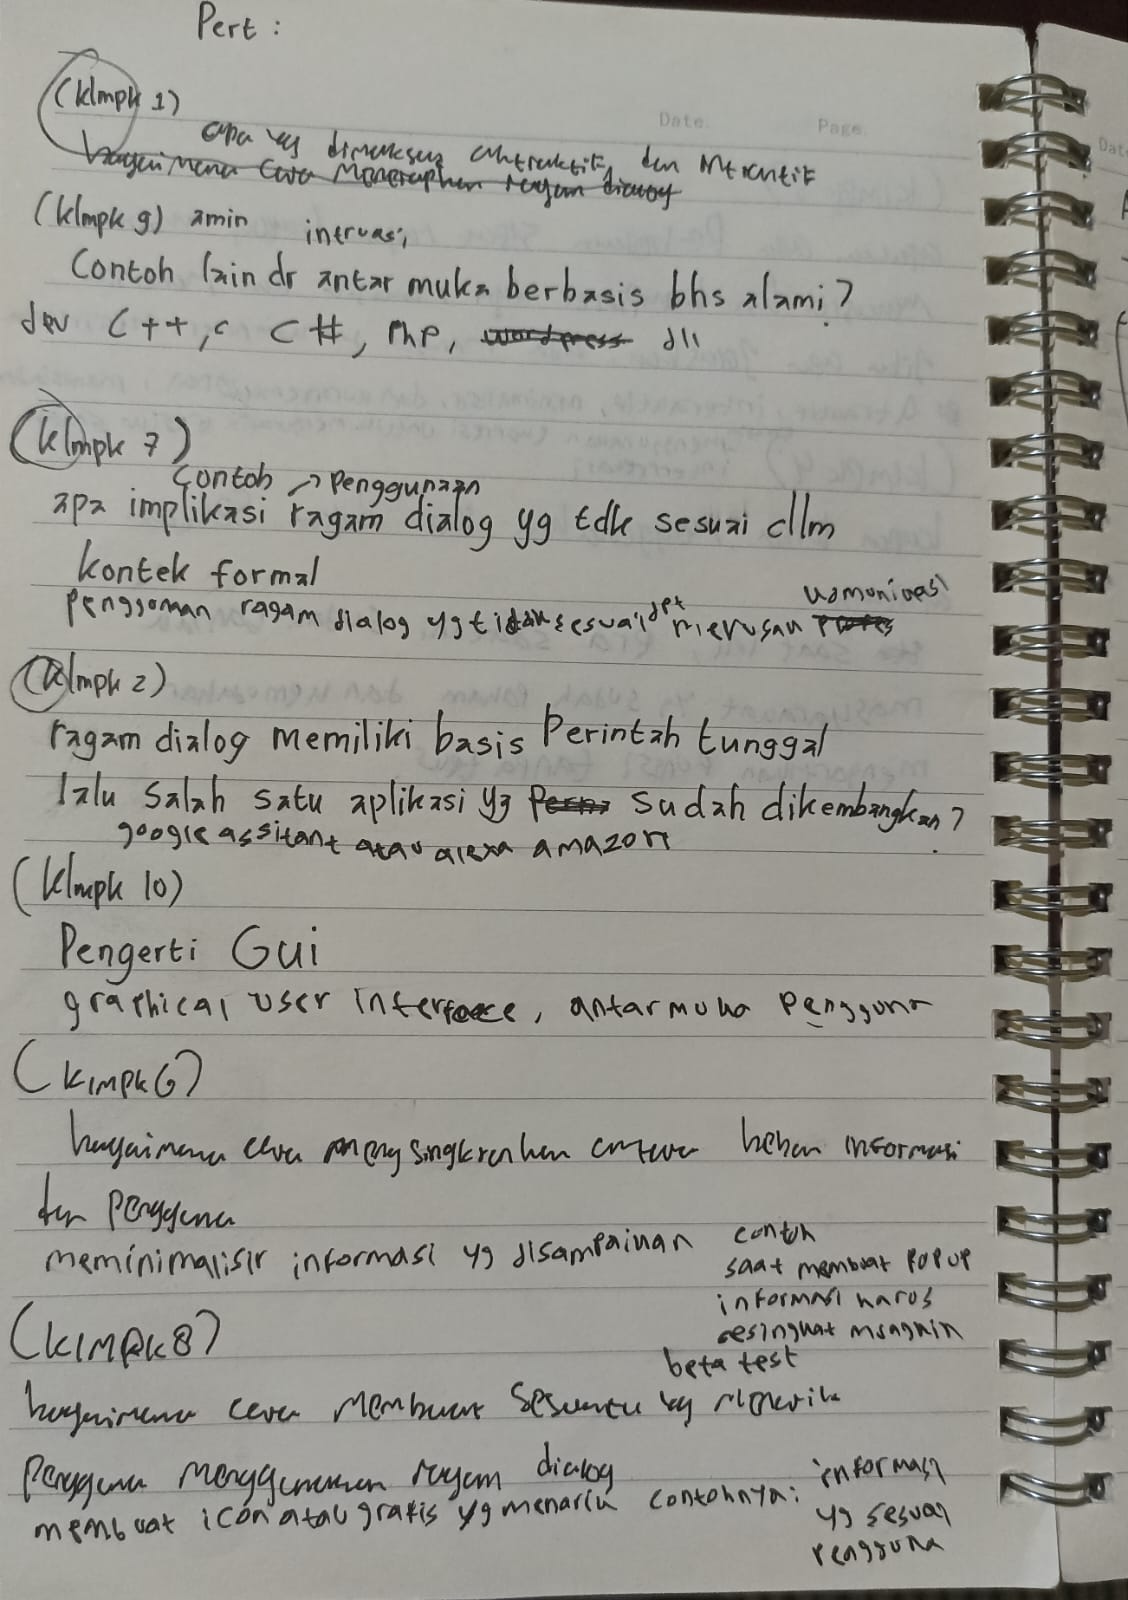 Pert :
Date.
Page.
(klmpk 1)
apa yg dimaksud dan
bagaimana cara Menerapkan ragam dialog
(klmpk 9) amin intruasi,
Contoh lain dr antar muka berbasis bhs alami?
dev C++, c C#, PhP, wordpress dll
(klmpk 7)
Contoh → Penggunaan
apa implikasi ragam dialog yg tdk sesuai dllm
kontek formal
penggunan ragam dialog yg tidak sesuai dpt merusak komunikasi
(klmpk 2)
ragam dialog memiliki basis Perintah tunggal
lalu Salah satu aplikasi yg sudah dikembangkan?
google assitant atau alexa amazon
(klmpk 10)
Pengerti Gui
graphical user interface, antarmuka pengguna
(KlMPk 6)
bagaimana cara mengsingkrankan antara beban informasi
dan pengguna
meminimalisir informasi yg disampaikan contoh
saat membuat POPUP
informasi harus
sesingkat
(KlMPk 8)
beta test
bagaimana cara Membuat Sesuatu yg Menarik
pengguna menggunakan ragam dialog
membuat icon atau grafis yg menarik contohnya: informasi
yg sesuai
pengguna